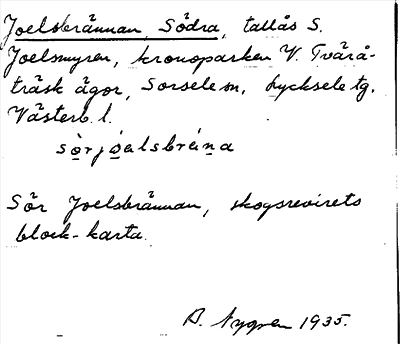 Joelsbrännan, Södra, tallås S.
Joelsmyren, kronoparken V. Tvärå-
träsk ägor, Sorsele sn, Lycksele tg.
Västerb. l.
sö̱rjo̱elsbrén̲a
Sör Joelsbrännan, skogsrevirets
block-karta.
B. Nygren 1935.